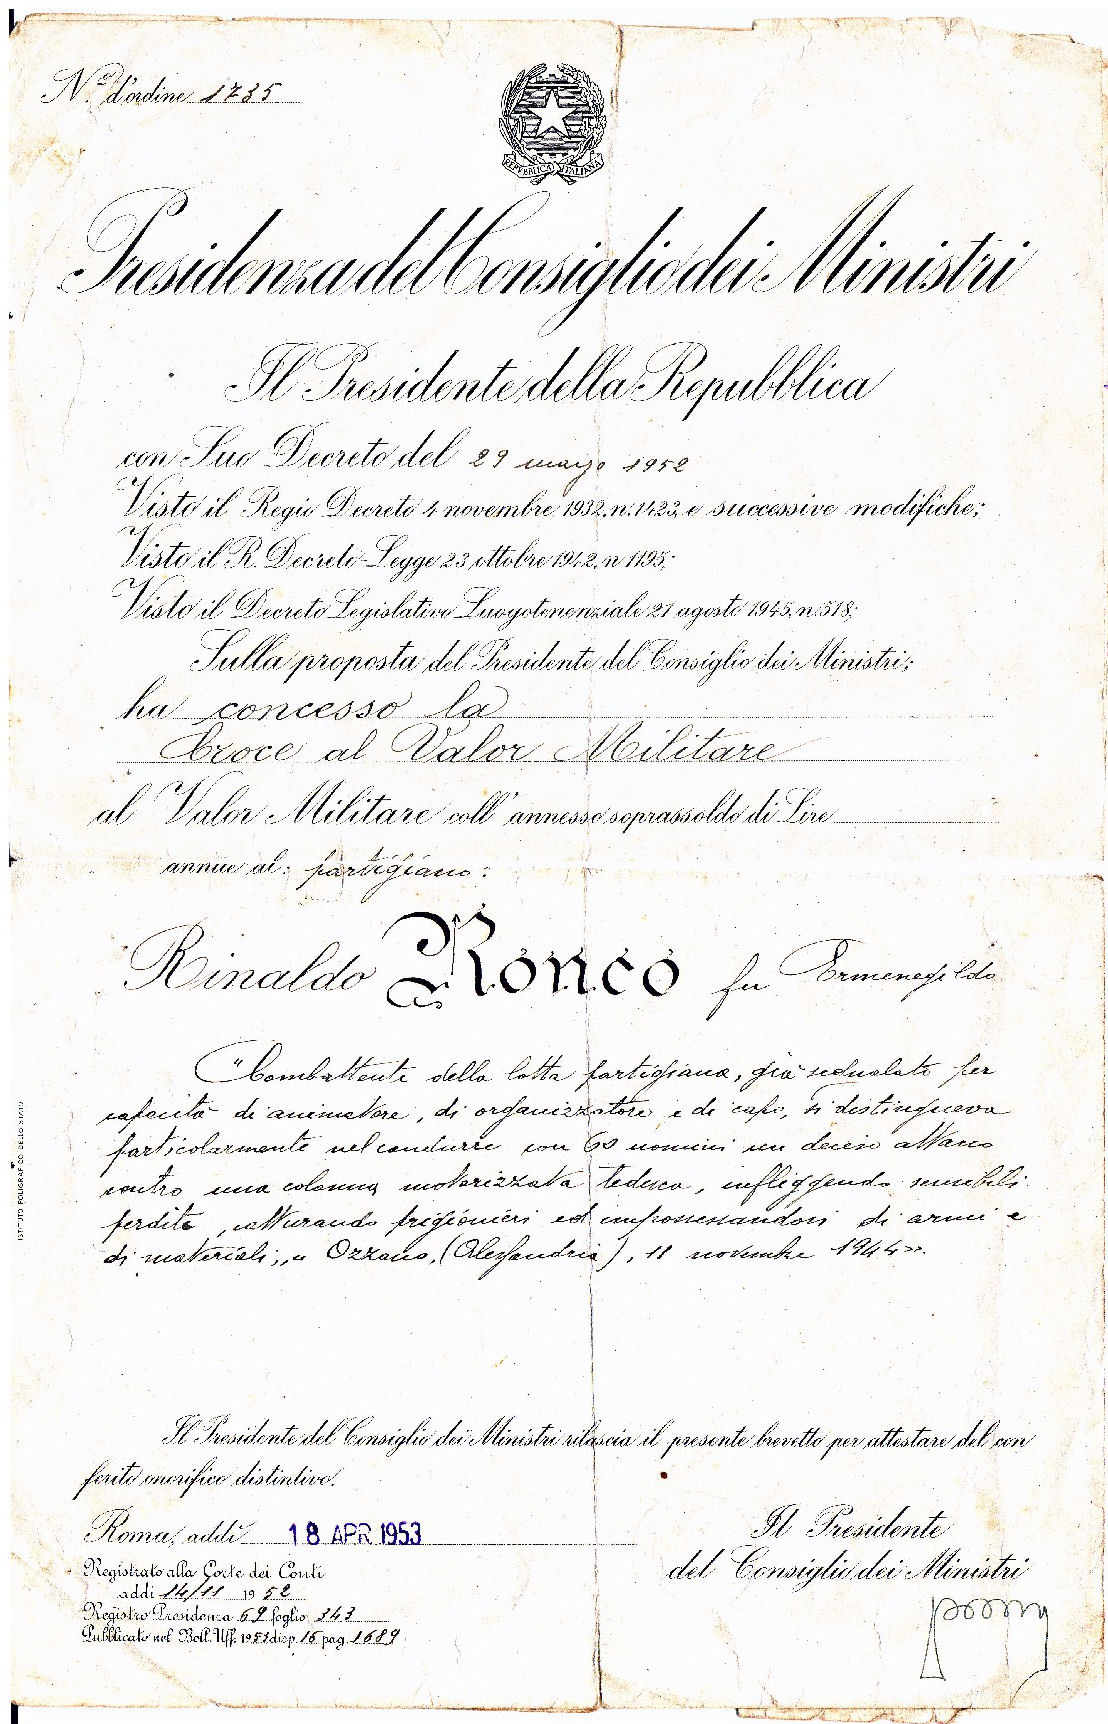 N.º d'ordine 1735
REPVBBLICA ITALIANA
Presidenza del Consiglio dei Ministri
Il Presidente della Repubblica
con Suo Decreto del 29 marzo 1952
Visto il Regio Decreto 4 novembre 1932, n. 1423, e successive modifiche;
Visto il R. Decreto-Legge 23 ottobre 1942, n 1195;
Visto il Decreto Legislativo Luogotenenziale 21 agosto 1945, n. 518;
Sulla proposta del Presidente del Consiglio dei Ministri;
ha concesso la
Croce al Valor Militare
al Valor Militare coll'annesso soprassoldo di Lire
annue al: partigiano:
Rinaldo Ronco fu Ermenegildo
"Combattente della lotta partigiana, già segnalato per
capacità di animatore, di organizzatore e di capo, si distingueva
particolarmente nel condurre con 60 uomini un deciso attacco
contro una colonna motorizzata tedesca, infliggendo sensibili
perdite, catturando prigionieri ed impossessandosi di armi e
di materiali; „ Ozzano, (Alessandria), 11 novembre 1944».
Il Presidente del Consiglio dei Ministri rilascia il presente brevetto per attestare del con
ferito onorifico distintivo.
Roma, addì 18 APR 1953
Il Presidente
del Consiglio dei Ministri
Registrato alla Corte dei Conti
addì 14/11 1952
Registro Presidenza 69 foglio 343
Pubblicato nel Boll. Uff. 1953 disp. 15 pag. 1689
ISTITUTO POLIGRAFICO DELLO STATO